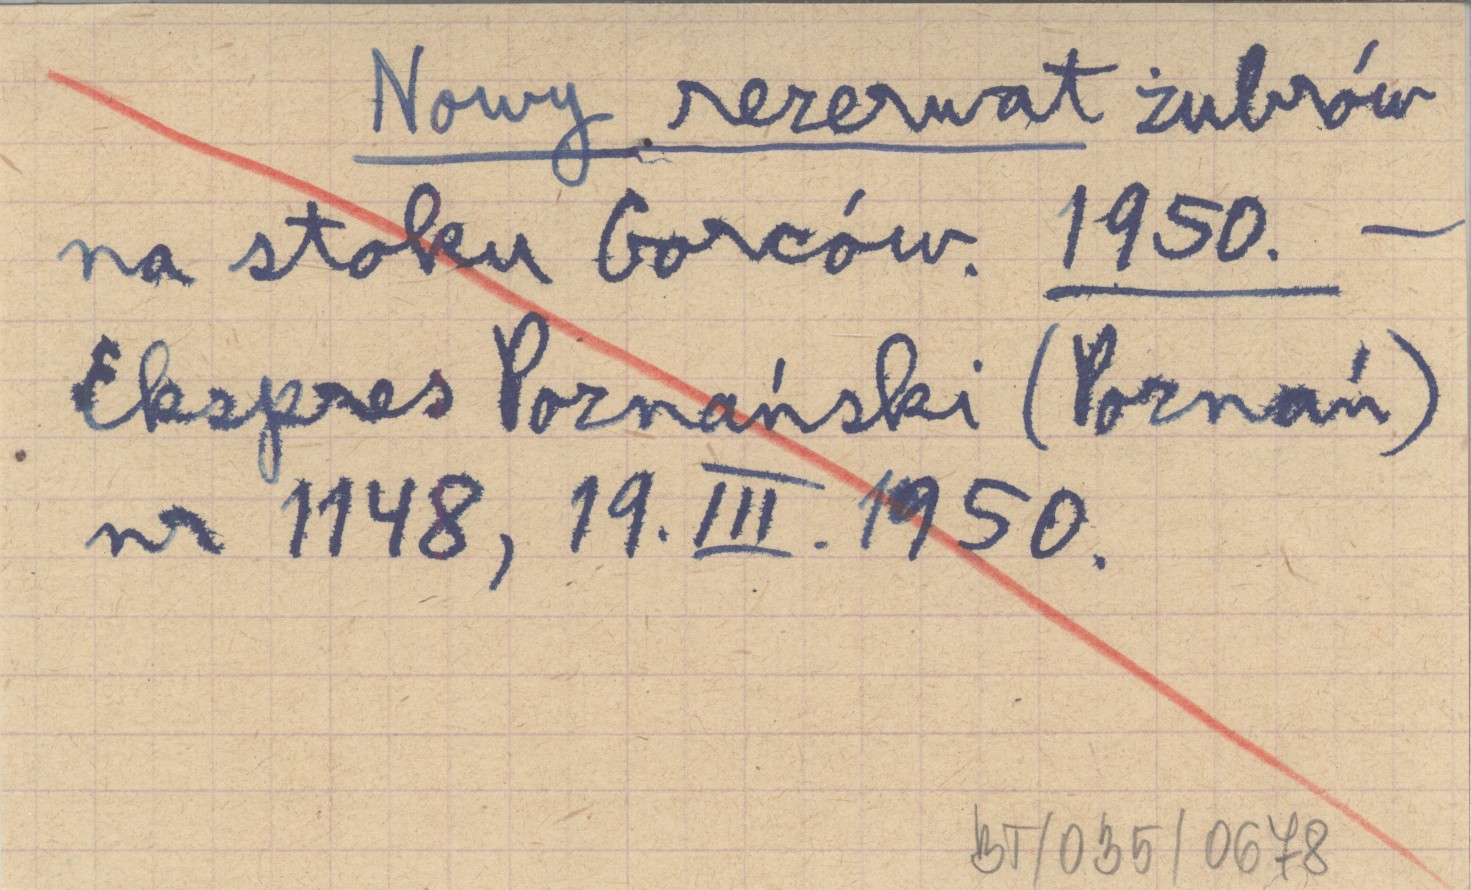 Nowy rezerwat żubrów
na stoku Gorców. 1950. —
Ekspres Poznański (Poznań)
nr 1148, 19. III. 1950.
BT/035/0678